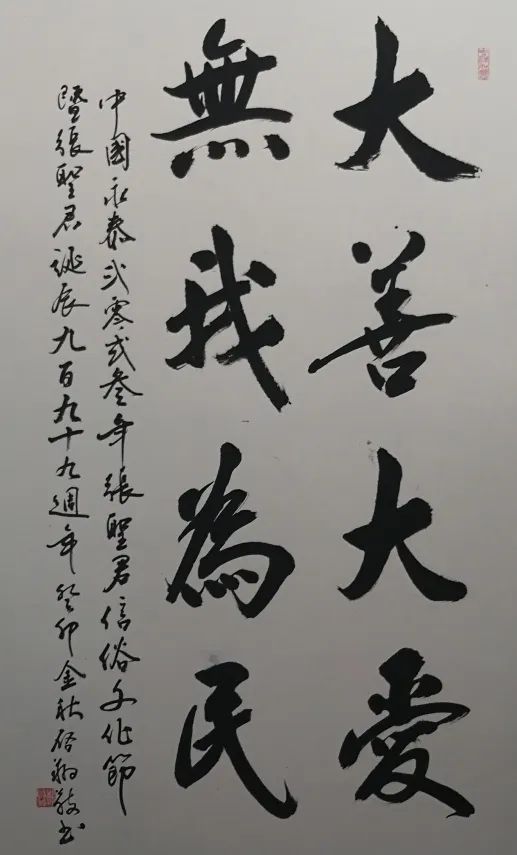 大善大愛
無我為民
中國永泰弍零弍叁年張聖君信俗文化節
暨張聖君誕辰九百九十九週年癸卯金秋啓翔敬书